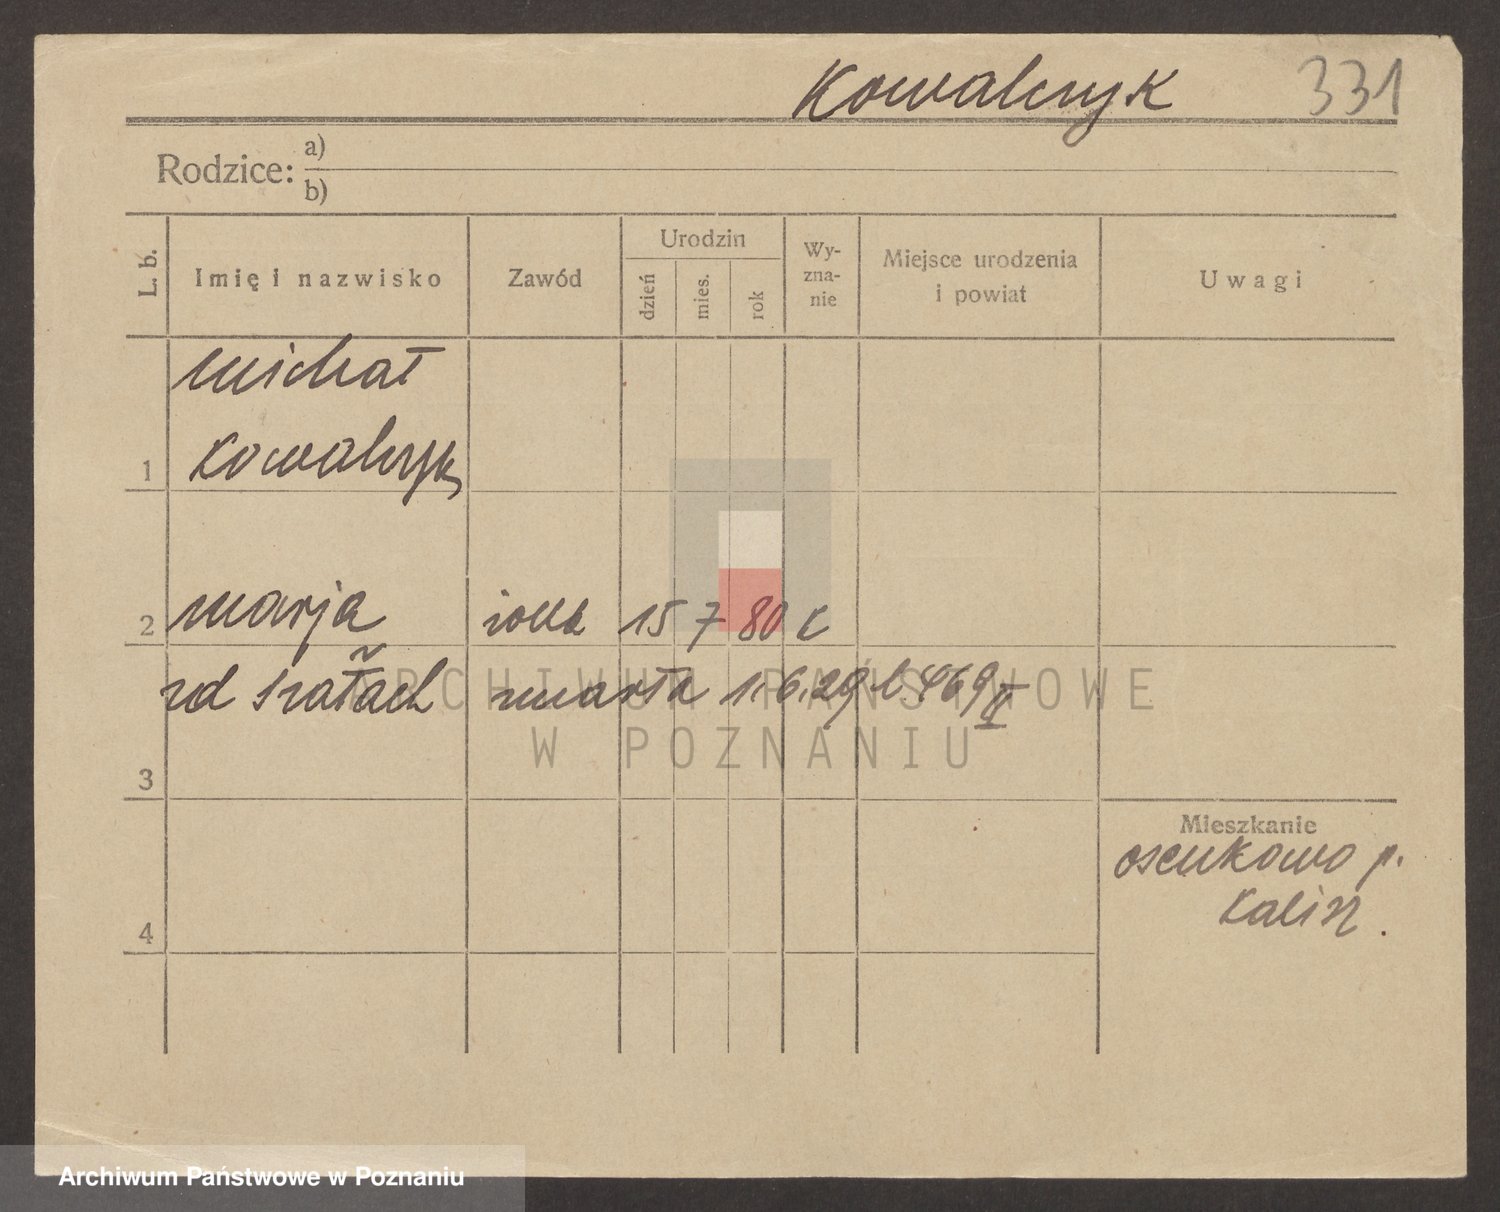 Kowalczyk 331
Rodzice: a)
b)
L. b.
Imię i nazwisko
Zawód
Urodzin
dzień
mies.
rok
Wy-
zna-
nie
Miejsce urodzenia
i powiat
Uwagi
michał
1 Kowalczyk
2 marja żona 15 7 80 k
zmarła 1.6.29 l. 469 II
ARCHIWUM PAŃSTWOWE
W POZNANIU
3
Mieszkanie
osenkowo p.
Kalisz.
4
Archiwum Państwowe w Poznaniu